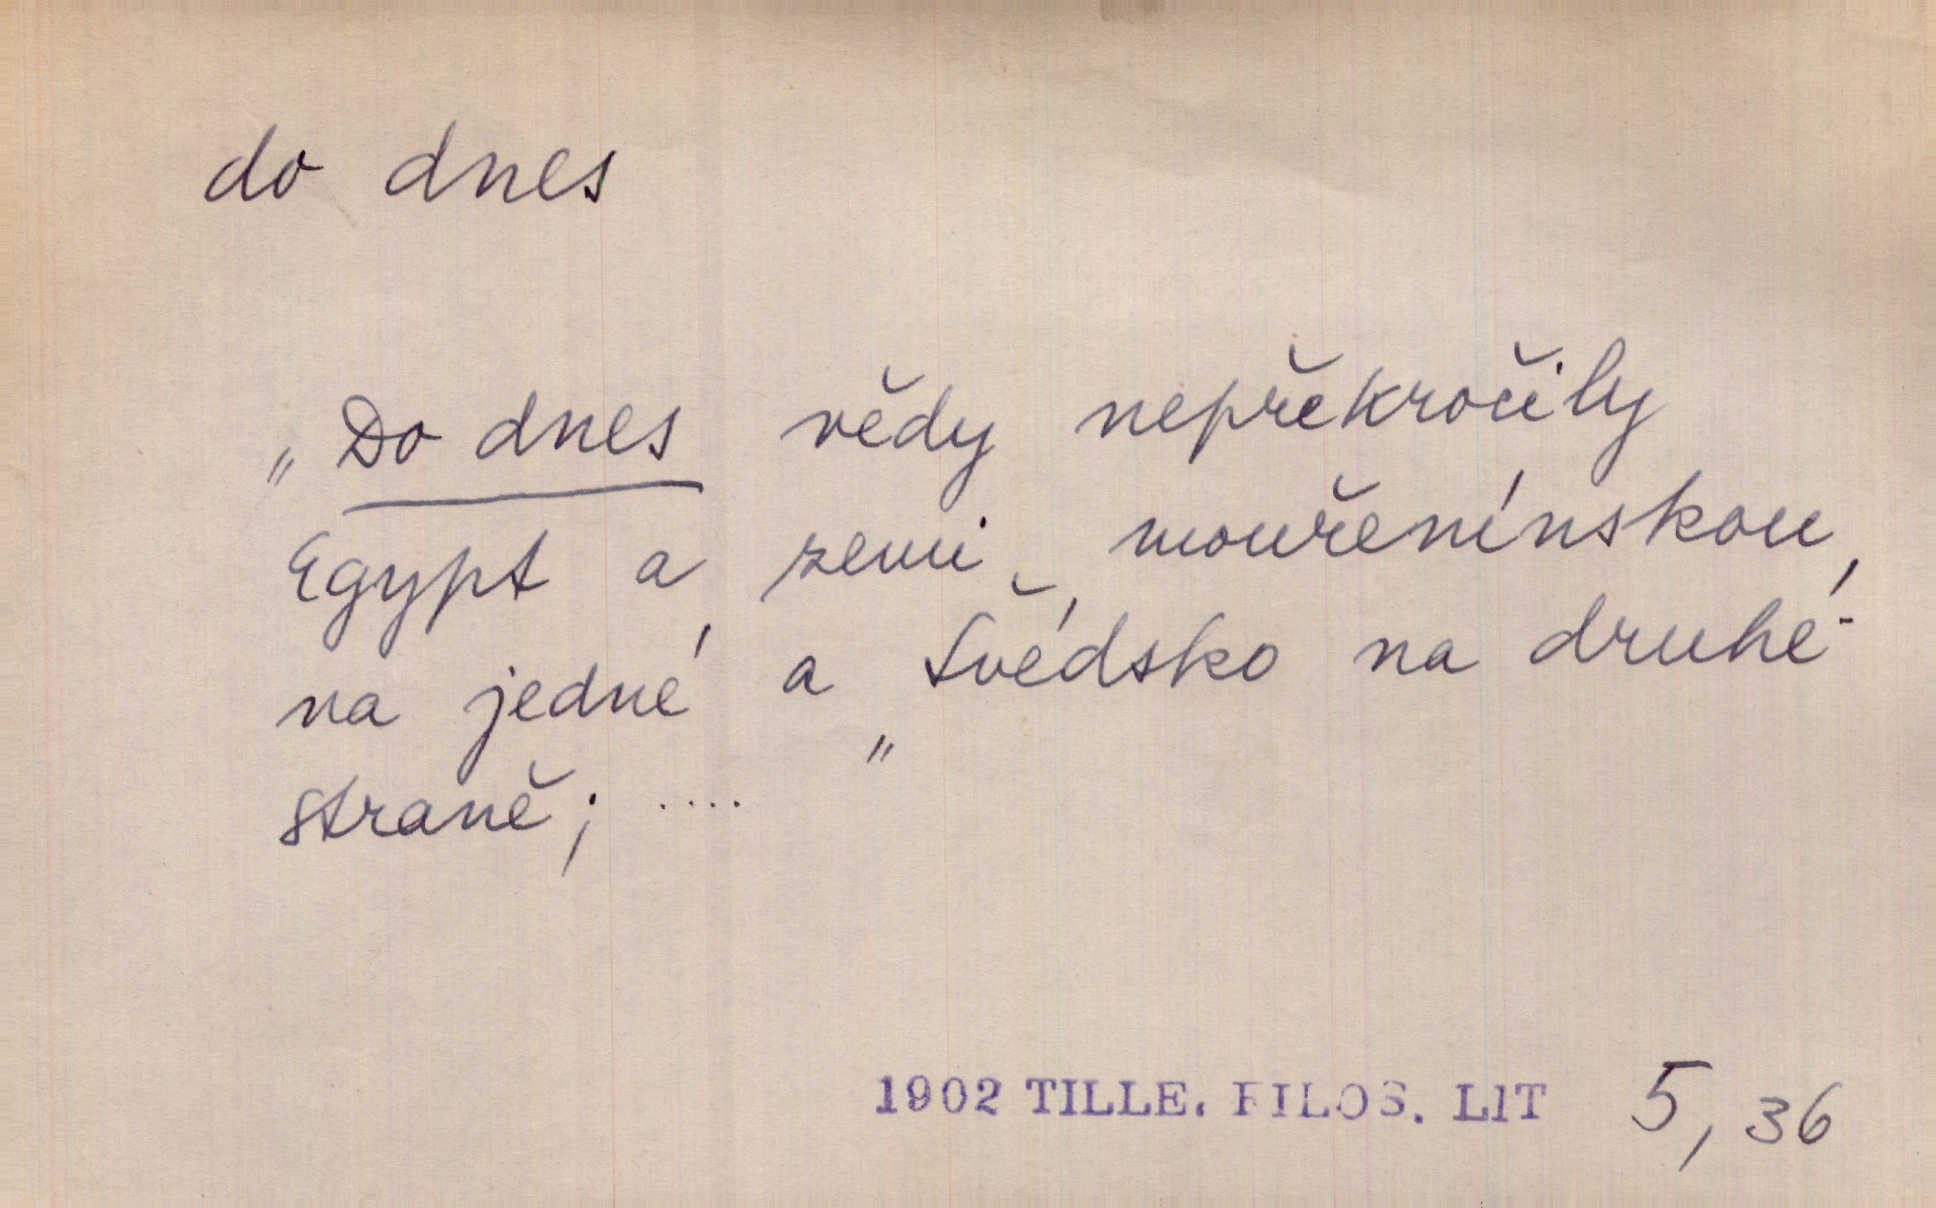 do dnes
„Do dnes vědy nepřekročily
Egypt a zemi mouřenínskou,
na jedné a Švédsko na druhé
straně; .... "
1902 TILLE. FILOS. LIT 5, 36